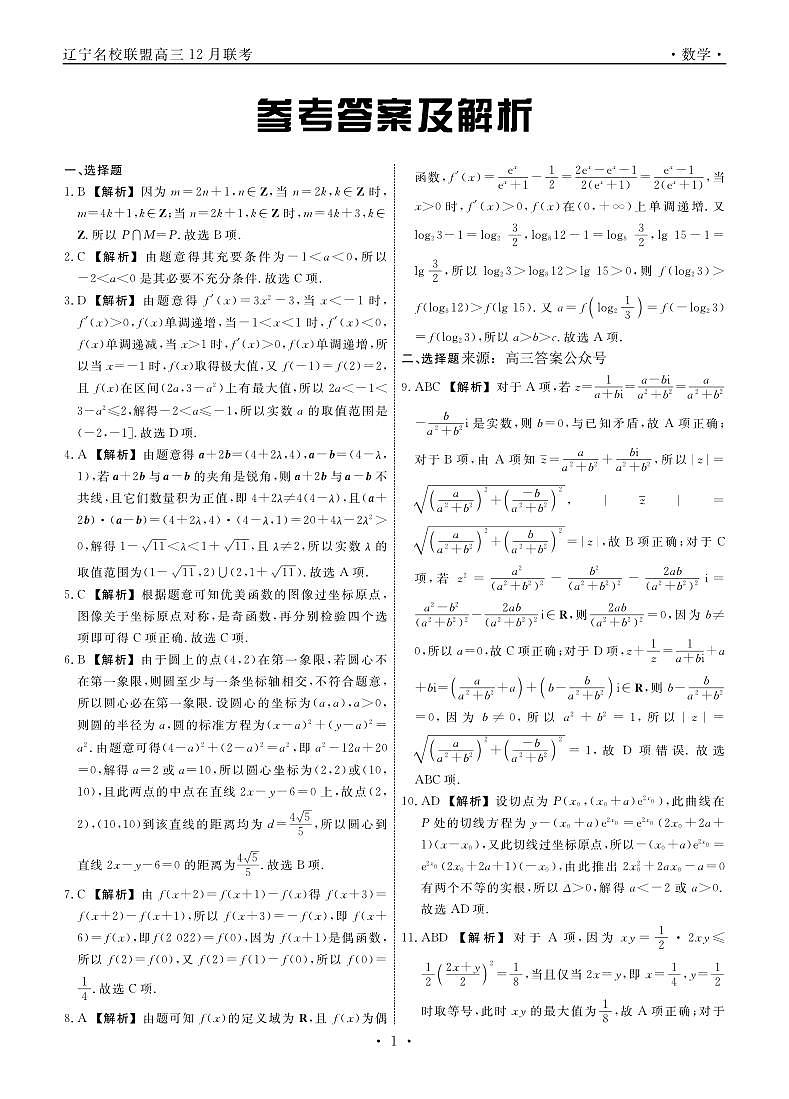 辽宁名校联盟高三 12 月联考 ·数学·
参考答案及解析
一、选择题
1. B 【解析】因为 m=2n+1,n∈Z,当 n=2k,k∈Z 时,
m=4k+1,k∈Z;当 n=2k+1,k∈Z 时,m=4k+3,k∈
Z. 所以 P∩M=P. 故选 B 项.
2. C 【解析】由题意得其充要条件为-1<a<0,所以
-2<a<0 是其必要不充分条件. 故选 C 项.
3. D 【解析】由题意得 f′(x)=3x²-3,当 x<-1 时,
f′(x)>0,f(x)单调递增,当-1<x<1 时,f′(x)<0,
f(x)单调递减,当 x>1 时,f′(x)>0,f(x)单调递增,所
以当 x=-1 时,f(x)取得极大值,又 f(-1)=f(2)=2,
且 f(x)在区间(2a,3-a²)上有最大值,所以 2a<-1<
3-a²≤2,解得-2<a≤-1,所以实数 a 的取值范围是
(-2,-1]. 故选 D 项.
4. A 【解析】由题意得 a+2b=(4+2λ,4),a-b=(4-λ,
1),若 a+2b 与 a-b 的夹角是锐角,则 a+2b 与 a-b 不
共线,且它们数量积为正值,即 4+2λ≠4(4-λ),且(a+
2b)·(a-b)=(4+2λ,4)·(4-λ,1)=20+4λ-2λ²>
0,解得 1-√11<λ<1+√11,且 λ≠2,所以实数 λ 的
取值范围为(1-√11,2)∪(2,1+√11). 故选 A 项.
5. C 【解析】根据题意可知优美函数的图像过坐标原点,
图像关于坐标原点对称,是奇函数,再分别检验四个选
项即可得 C 项正确. 故选 C 项.
6. B 【解析】由于圆上的点(4,2)在第一象限,若圆心不
在第一象限,则圆至少与一条坐标轴相交,不符合题意,
所以圆心必在第一象限. 设圆心的坐标为(a,a),a>0,
则圆的半径为 a,圆的标准方程为(x-a)²+(y-a)²=
a². 由题意可得(4-a)²+(2-a)²=a²,即 a²-12a+20
=0,解得 a=2 或 a=10,所以圆心坐标为(2,2)或(10,
10),且此两点的中点在直线 2x-y-6=0 上,故点(2,
2),(10,10)到该直线的距离均为 d=4√5/5,所以圆心到
直线 2x-y-6=0 的距离为4√5/5. 故选 B 项.
7. C 【解析】由 f(x+2)=f(x+1)-f(x)得 f(x+3)=
f(x+2)-f(x+1),所以 f(x+3)=-f(x),即 f(x+
6)=f(x),即f(2 022)=f(0),因为 f(x+1)是偶函数,
所以 f(2)=f(0),又 f(2)=f(1)-f(0),所以 f(0)=
1/4. 故选 C 项.
8. A 【解析】由题可知 f(x)的定义域为 R,且 f(x)为偶
函数,f′(x)=eˣ/(eˣ+1)-1/2=(2eˣ-eˣ-1)/(2(eˣ+1))=(eˣ-1)/(2(eˣ+1)),当
x>0 时,f′(x)>0,f(x)在(0,+∞)上单调递增. 又
log₂3-1=log₂ 3/2,log₈12-1=log₈ 3/2,lg 15-1=
lg 3/2,所以 log₂3>log₈12>lg 15>0,则 f(log₂3)>
f(log₈12)>f(lg 15). 又 a=f(log₂ 1/3)=f(-log₂3)
=f(log₂3),所以 a>b>c. 故选 A 项.
二、选择题来源:高三答案公众号
9. ABC 【解析】对于 A 项,若 z=1/(a+bi)=(a-bi)/(a²+b²)=a/(a²+b²)
-b/(a²+b²)i 是实数,则 b=0,与已知矛盾,故 A 项正确;
对于 B 项,由 A 项知 z̄=a/(a²+b²)+bi/(a²+b²),所以|z|=
√((a/(a²+b²))²+(-b/(a²+b²))²),|z̄|=
√((a/(a²+b²))²+(b/(a²+b²))²)=|z|,故 B 项正确;对于 C
项,若 z²=a²/(a²+b²)²-b²/(a²+b²)²-2ab/(a²+b²)² i=
(a²-b²)/(a²+b²)²-2ab/(a²+b²)² i∈R,则2ab/(a²+b²)²=0,因为 b≠
0,所以 a=0,故 C 项正确;对于 D 项,z+1/z=1/(a+bi)+a
+bi=(a/(a²+b²)+a)+(b-b/(a²+b²))i∈R,则 b-b/(a²+b²)
=0,因为 b≠0,所以 a²+b²=1,所以|z|=
√((a/(a²+b²))²+(-b/(a²+b²))²)=1,故 D 项错误. 故选
ABC 项.
10. AD 【解析】设切点为 P(x₀,(x₀+a)e^(2x₀)),此曲线在
P 处的切线方程为 y-(x₀+a)e^(2x₀)=e^(2x₀)(2x₀+2a+
1)(x-x₀),又此切线过坐标原点,所以-(x₀+a)e^(2x₀)=
e^(2x₀)(2x₀+2a+1)(-x₀),由此推出 2x₀²+2ax₀-a=0
有两个不等的实根,所以 Δ>0,解得 a<-2 或 a>0.
故选 AD 项.
11. ABD 【解析】对于 A 项,因为 xy=1/2·2xy≤
1/2((2x+y)/2)²=1/8,当且仅当 2x=y,即 x=1/4,y=1/2
时取等号,此时 xy 的最大值为1/8,故 A 项正确;对于
· 1 ·